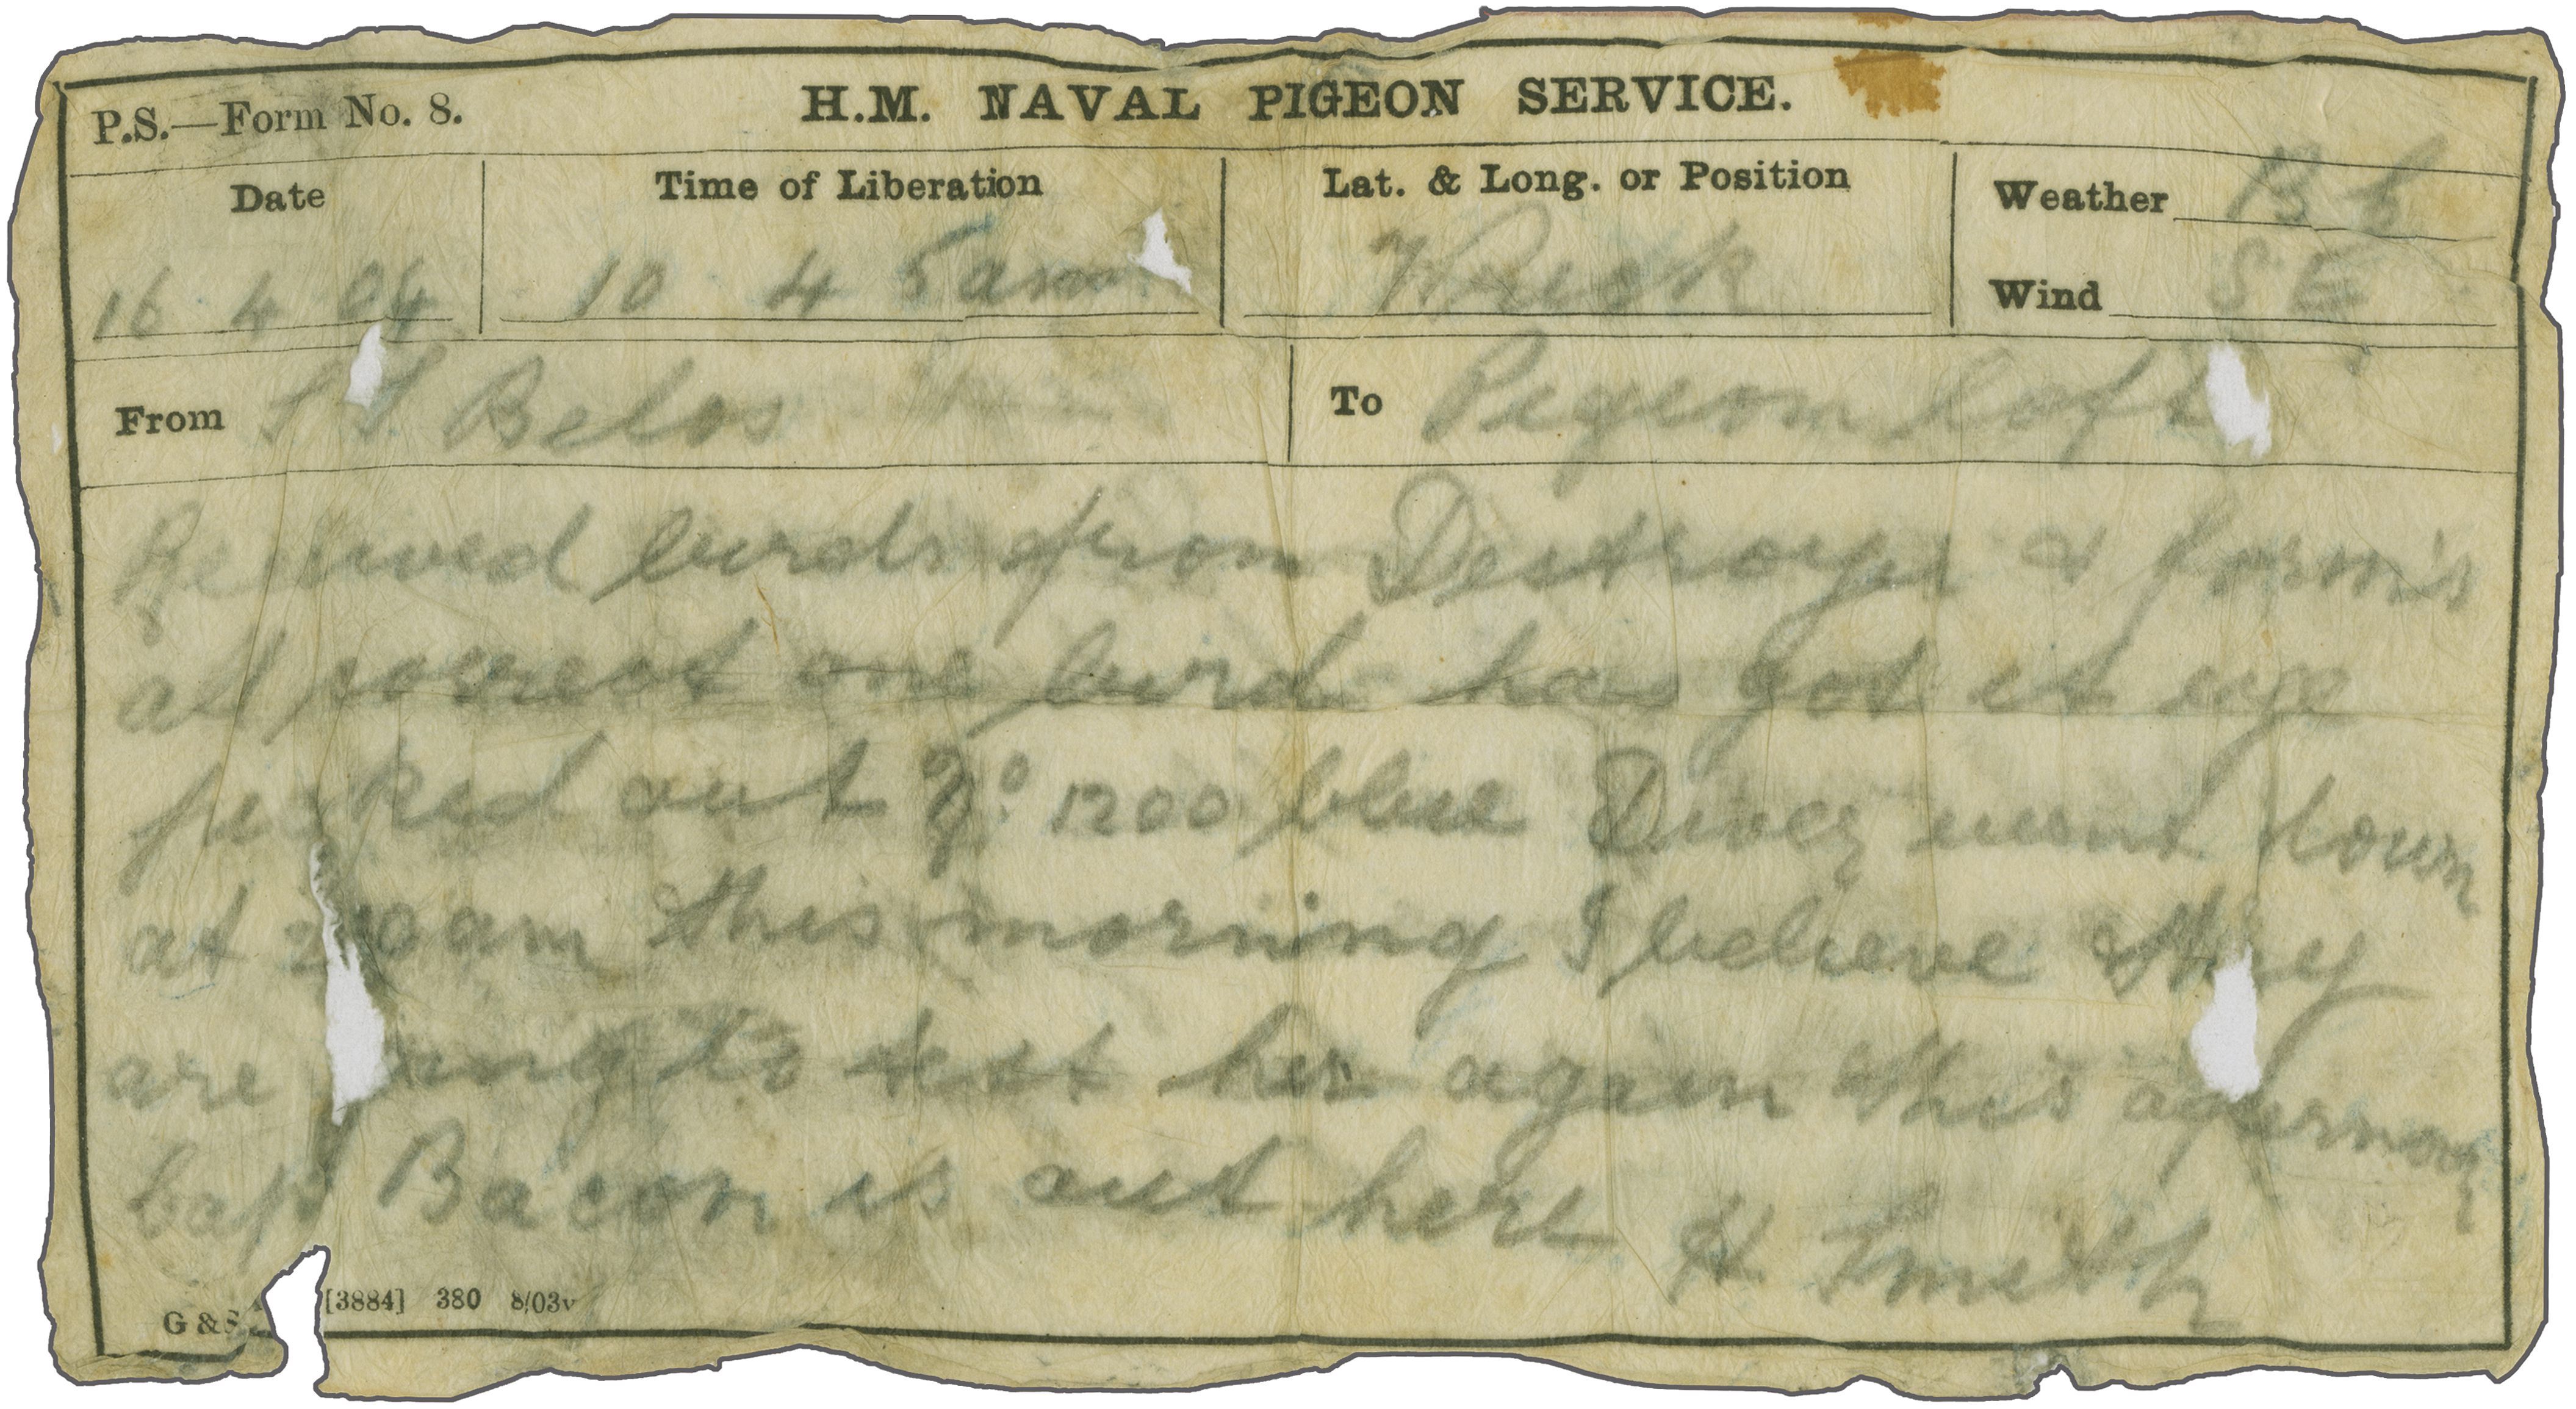 P.S.—Form No. 8. H.M. NAVAL PIGEON SERVICE.
Date Time of Liberation Lat. & Long. or Position Weather B b
16 . 4 . 04 10 . 4 5 am Wreck Wind S E
From S S Belos To Pigeon loft
Received birds from Destroyer & forms
all correct one bird has got it eye
pecked out No 1200 blue Divers went down
at am this morning I believe they
are going to test her again this afternoon
Capt Bacon is out here H Smith
G & S [3884] 380 8/03v